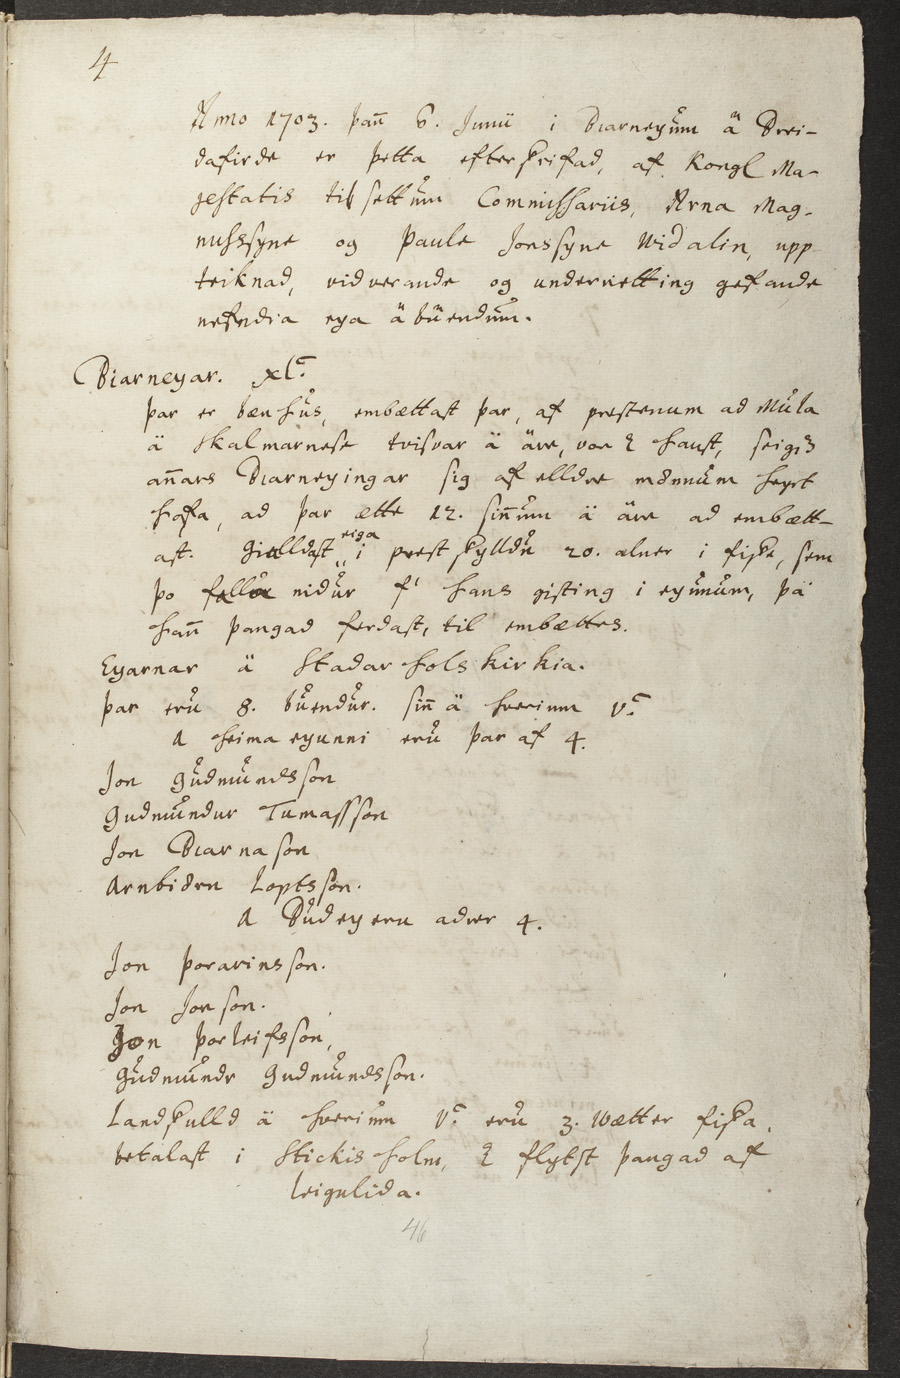 4
Anno 1703. þan̄ 6. Junii i Biarneyum ä Brei-
dafirde er þetta efterskrifad, af Kongl Ma-
jestatis til settum Commissariis, Arna Mag-
nussyne og Paule Jonssyne Widalin, upp
teiknad, vidverande og underretting gefande
nefndra eya äbüendum.
Biarneyar. xlc.
þar er bænhus, embættast þar, af prestenum ad Mula
ä Skalmarnese tvisvar ä äre, vor & haust, seigia
an̄ars Biarneyingar sig af elldre mönnum heyrt
hafa, ad þar ætte 12. sin̄um ä äre ad embætt-
ast. Gialldast eiga i prestskylldu 20. alner i fiske, sem
þo falla nidur f' hans gisting i eyunum, þä
han̄ þangad ferdast, til embættes.
Eyarnar ä Stadarhols kirkia.
þar eru 8. buendur. sin̄ ä hverium vc.
A heima eyunni eru þar af 4.
Jon Gudmundsson
Gudmundur Tumasson
Jon Biarnason
Arnbiörn Loptsson.
A Budey eru adrer 4.
Jon þorarinsson.
Jon Jonson.
Jon þorleifsson,
Gudmundr Gudmundsson.
Landskulld ä hverium vc. eru 3. Wætter fiska,
betalast i Stickisholm, & flytst þangad af
leigulida.
46